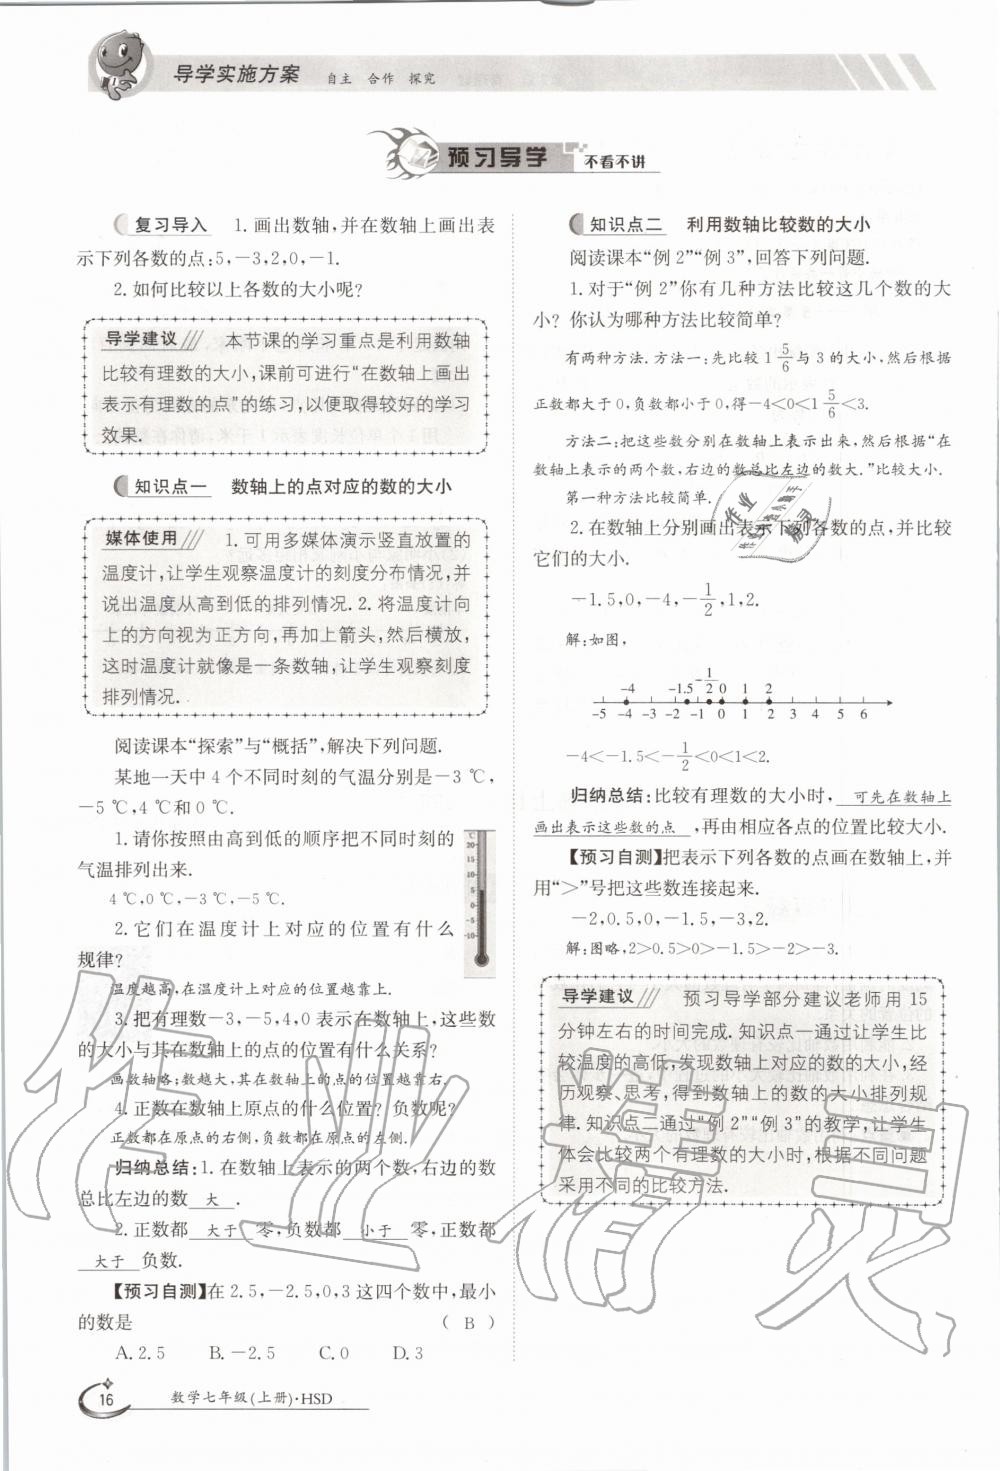 导学实施方案 自主 合作 探究
预习导学 不看不讲
复习导入 1.画出数轴,并在数轴上画出表
示下列各数的点:5,-3,2,0,-1.
2.如何比较以上各数的大小呢?
导学建议 本节课的学习重点是利用数轴
比较有理数的大小,课前可进行“在数轴上画出
表示有理数的点”的练习,以便取得较好的学习
效果.
知识点一 数轴上的点对应的数的大小
媒体使用 1.可用多媒体演示竖直放置的
温度计,让学生观察温度计的刻度分布情况,并
说出温度从高到低的排列情况.2.将温度计向
上的方向视为正方向,再加上箭头,然后横放,
这时温度计就像是一条数轴,让学生观察刻度
排列情况.
阅读课本“探索”与“概括”,解决下列问题.
某地一天中4个不同时刻的气温分别是-3 ℃,
-5 ℃,4 ℃和0 ℃.
1.请你按照由高到低的顺序把不同时刻的
气温排列出来.
4 ℃,0 ℃,-3 ℃,-5 ℃.
2.它们在温度计上对应的位置有什么
规律?
℃
20
15
10
5
0
-5
-10
温度越高,在温度计上对应的位置越靠上.
3.把有理数-3,-5,4,0表示在数轴上,这些数
的大小与其在数轴上的点的位置有什么关系?
画数轴略;数越大,其在数轴上的点的位置越靠右.
4.正数在数轴上原点的什么位置?负数呢?
正数都在原点的右侧,负数都在原点的左侧.
归纳总结:1.在数轴上表示的两个数,右边的数
总比左边的数 大 .
2.正数都 大于 零,负数都 小于 零,正数都
大于 负数.
【预习自测】在2.5,-2.5,0,3这四个数中,最小
的数是 ( B )
A.2.5 B.-2.5 C.0 D.3
知识点二 利用数轴比较数的大小
阅读课本“例2”“例3”,回答下列问题.
1.对于“例2”你有几种方法比较这几个数的大
小?你认为哪种方法比较简单?
有两种方法.方法一:先比较1 5/6 与3的大小,然后根据
正数都大于0,负数都小于0,得-4<0<1 5/6 <3.
方法二:把这些数分别在数轴上表示出来,然后根据“在
数轴上表示的两个数,右边的数总比左边的数大.”比较大小.
第一种方法比较简单.
2.在数轴上分别画出表示下列各数的点,并比较
它们的大小.
-1.5,0,-4,-1/2,1,2.
解:如图,
-4 -1.5 -1/2 0 1 2
-5 -4 -3 -2 -1 0 1 2 3 4 5 6
-4<-1.5<-1/2<0<1<2.
归纳总结:比较有理数的大小时, 可先在数轴上
画出表示这些数的点 ,再由相应各点的位置比较大小.
【预习自测】把表示下列各数的点画在数轴上,并
用“>”号把这些数连接起来.
-2,0.5,0,-1.5,-3,2.
解:图略,2>0.5>0>-1.5>-2>-3.
导学建议 预习导学部分建议老师用15
分钟左右的时间完成.知识点一通过让学生比
较温度的高低,发现数轴上对应的数的大小,经
历观察、思考,得到数轴上的数的大小排列规
律.知识点二通过“例2”“例3”的教学,让学生
体会比较两个有理数的大小时,根据不同问题
采用不同的比较方法.
作业精灵
16 数学七年级(上册)·HSD